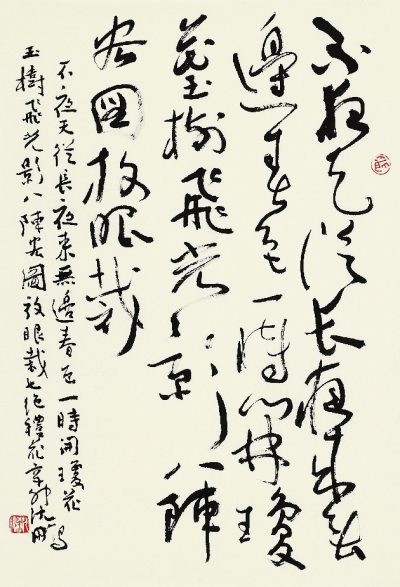 不夜天從長夜來無
邊春色一時開瓊
花玉樹飛光影八陣
宏圖放眼裁
不夜天從長夜來無邊春色一時開瓊花
玉樹飛光影八陣宏圖放眼裁七絕禮花辛卯沈鵬